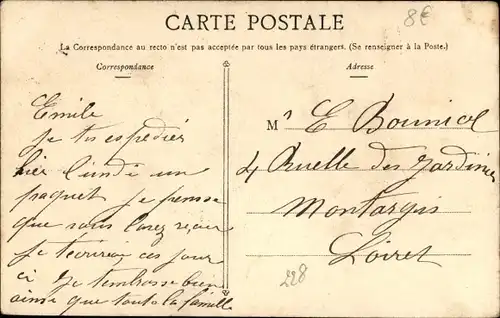 CARTE POSTALE
8€
La Correspondance au recto n'est pas acceptée par tous les pays étrangers. (Se renseigner à la Poste.)
Correspondance
Adresse
Emile
je tes espedier
hier lundi un
paquet je pense
que vous
je tecrirai ces jour
ci je tembrasse bien
ainsi que toute la famille
Mr E Bounicol
4 Ruelle des Jardiniers
Montargis
Loiret
228